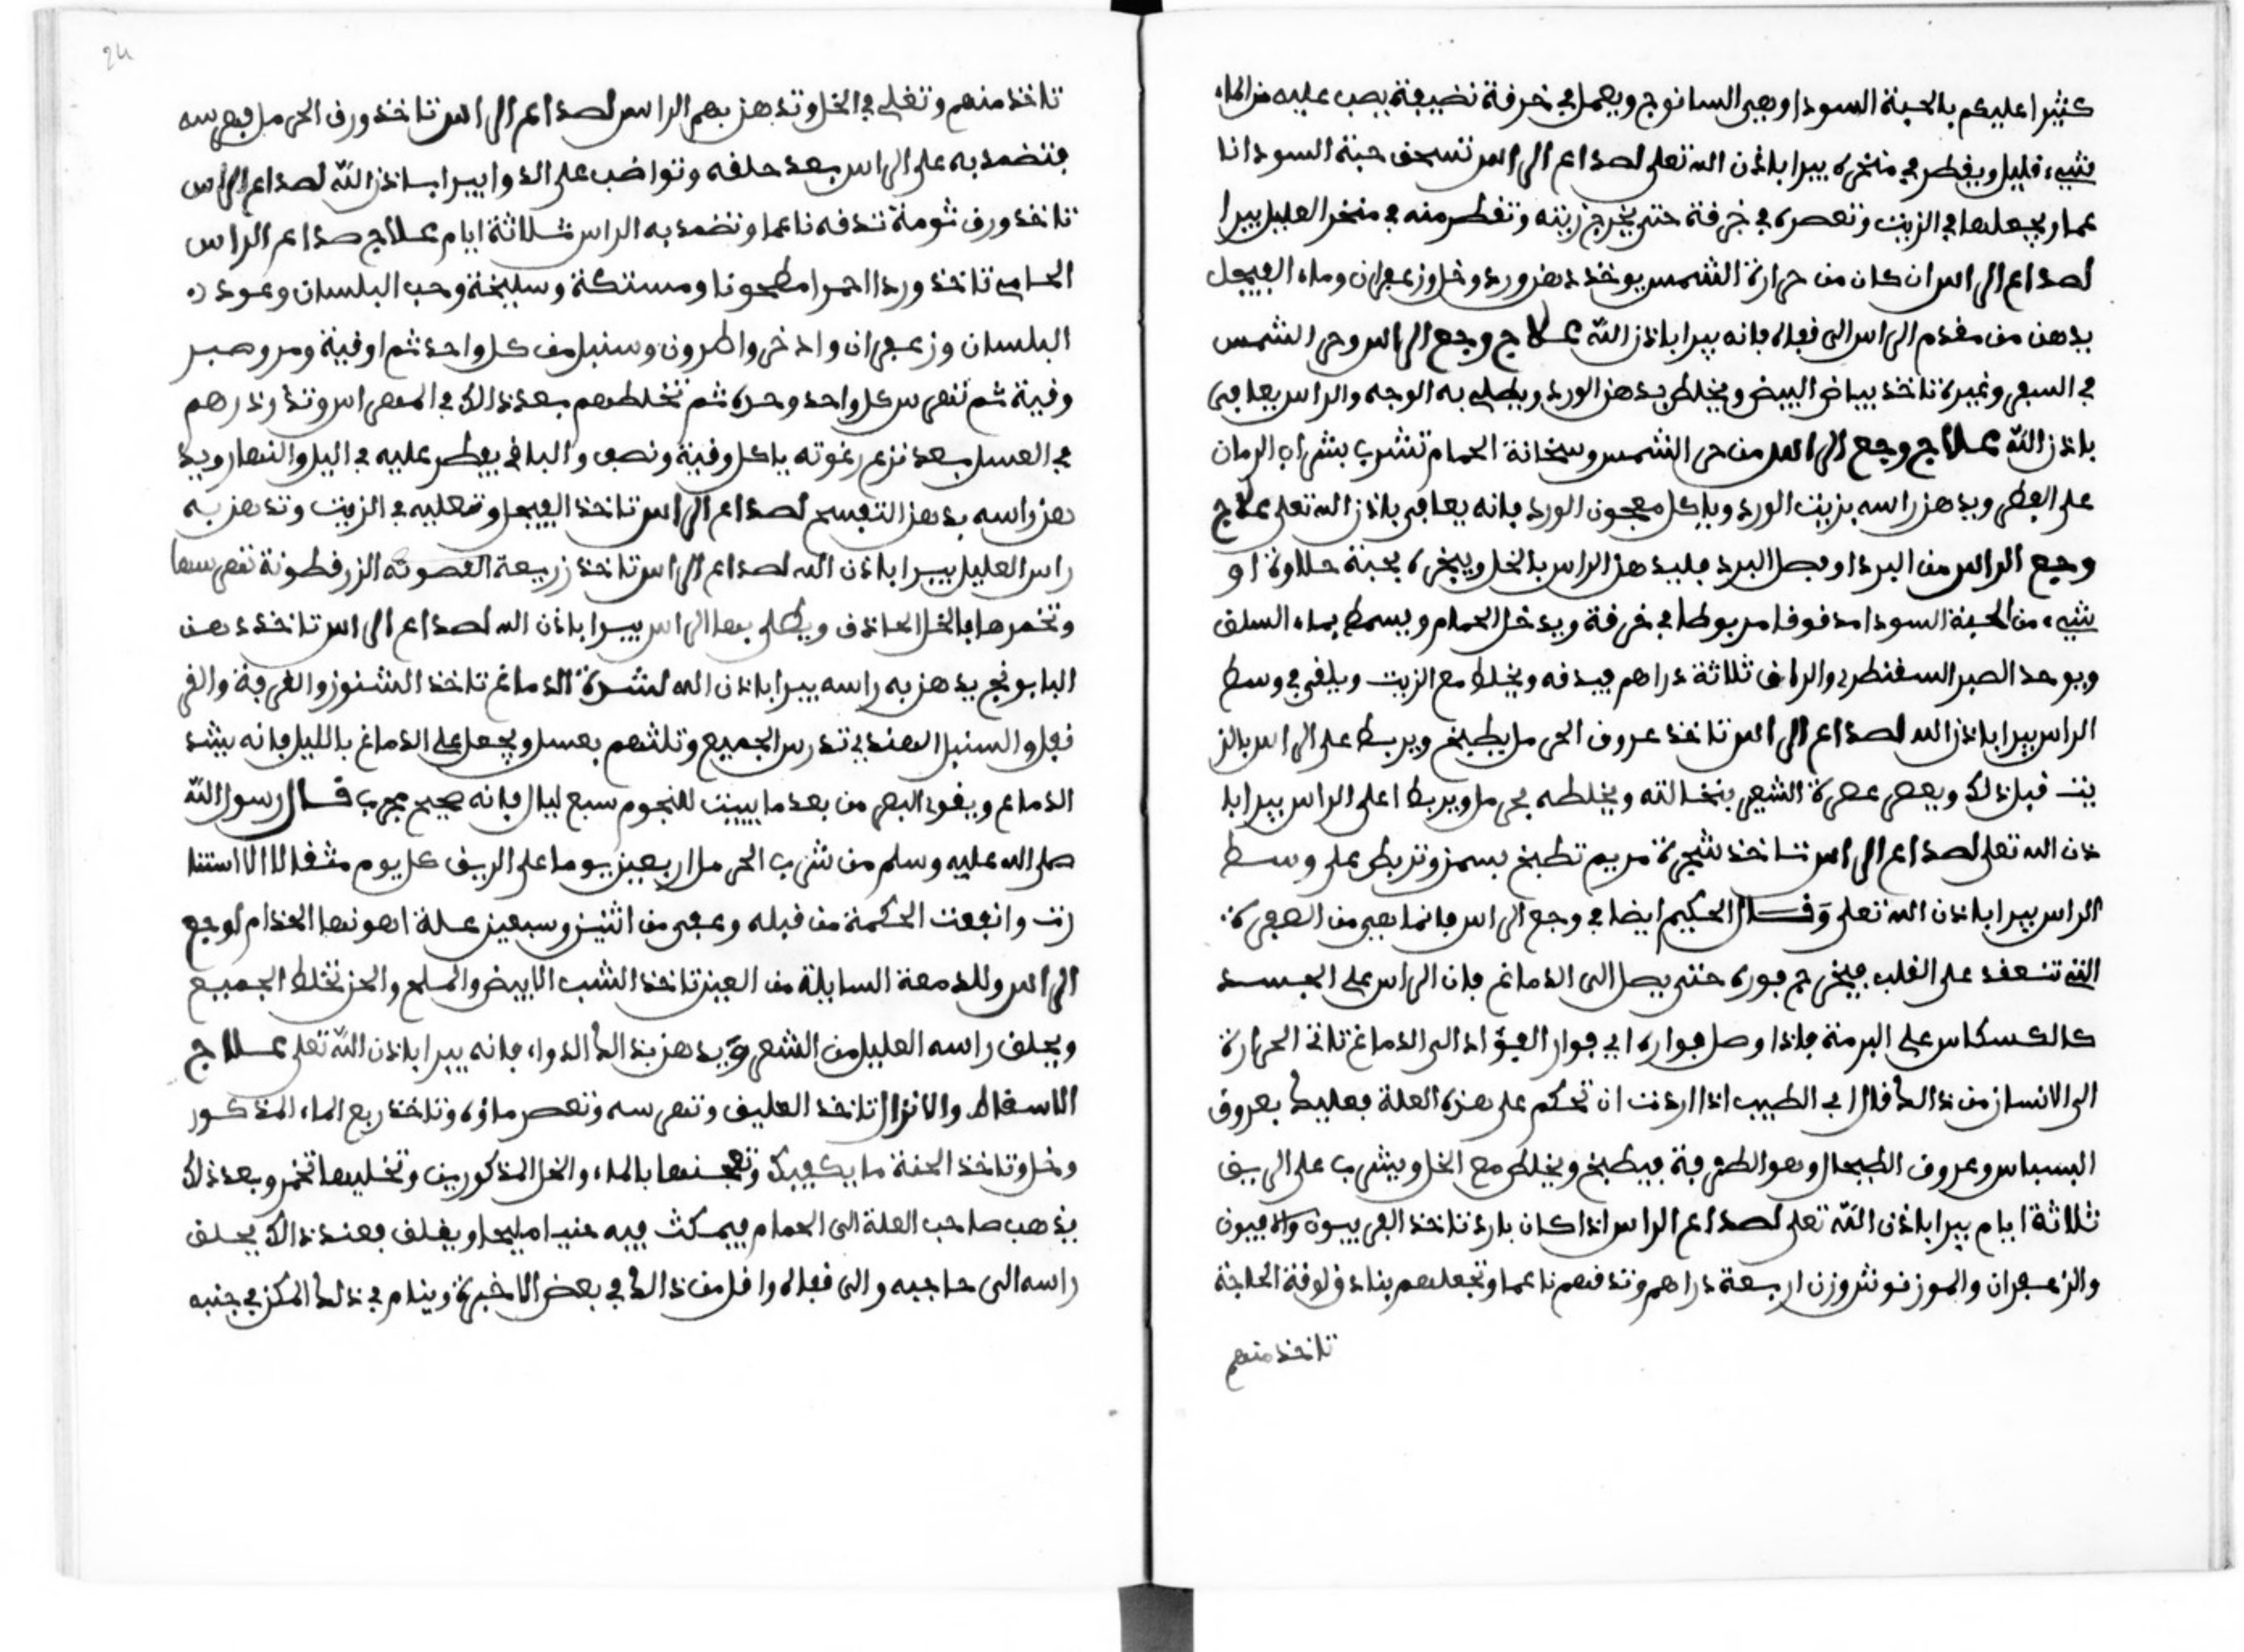 كثيرا عليكم بالحبة السودا وهي السانوج ويعمل في خرفة نضيفة يصب عليه من الماء
شيء قليل ويقطر في منخره يبرا باذن الله تعلى لصداع الراس تسحق حبة السودا نا
عما ويجعلها في الزيت وتعصره في خرفة حتى يخرج زيته وتقطر منه في منخر العليل يبرا
لصداع الراس ان كان من حرارة الشمس يوخذ دهن ورد وخل وزعفران وماء الفيجل
يدهن من مقدم الراس الى قفاه فانه يبرا باذن الله علاج وجع الراس وحر الشمس
في السفر وغيره تاخذ بياض البيض ويخلط بدهن الورد ويطلى به الوجه والراس يعافى
باذن الله علاج وجع الراس من حر الشمس وسخانة الحمام تشرب بشراب الرمان
على الفطر ويدهن راسه بزيت الورد وياكل معجون الورد فانه يعافى باذن الله تعلى علاج
وجع الراس من البرد او فصل البرد فليدهن الراس بالخل ويبخره بحبة حلاوة او
شيء من الحبة السودا مدقوقا مربوطا في خرفة ويدخل الحمام ويسمط بماء السلق
ويوخد الصبر السقنطري والراتق ثلاثة دراهم فيدقه ويخلط مع الزيت ويلقى في وسط
الراس يبرا باذن الله لصداع الراس تاخذ عروق الحرمل يطبخ ويربط على الراس بالز
يت قبل ذلك ويعصر عصرة الشعير بنخالته ويخلطه بحرمل ويربط اعلى الراس يبرا با
ذن الله تعلى لصداع الراس تاخذ شجرة مريم تطبخ بسمن وتربط على وسط
الراس يبرا باذن الله تعلى وقال الحكيم ايضا في وجع الراس فانما هي من الصفرة
التي تنعقد على القلب فيخرج فوره حتى يصل الى الدماغ فان الراس على الجسد
كالكسكاس على البرمة فاذا وصل فواره اي فوار الفؤاد الى الدماغ تاتى الحرارة
الى الانسان من ذالك قال اي الطبيب اذا اردت ان تحكم على هذه العلة فعليك بعروق
البسباس وعروق الطيحال وهو الطرفة فيطبخ ويخلط مع الخل ويشرب على الريق
ثلاثة ايام يبرا باذن الله تعلى لصداع الراس اذا كان بارد تاخذ الفربيون والافيون
والزعفران والموزنوثر وزن اربعة دراهم وتدقهم ناعما وتجعلهم بنادق لوقة الحاجة
تاخذ منهم
24
تاخذ منهم وتغلى في الخل وتدهن بهم الراس لصداع الراس تاخذ ورق الحرمل فهرسه
فتضمد به على الراس بعد حلقه وتواضب على الدوا يبرا باذن الله لصداع الراس
تاخذ ورق ثومة تدقه ناعما وتضمد به الراس ثلاثة ايام علاج صداع الراس
الحامي تاخذ وردا احمرا مطحونا ومستكة وسليخة وحب البلسان وعود
البلسان وزعفران واذخر واطرون وسنبل من كل واحد ثم اوقية ومر وصبر
وقية ثم تهرس كل واحد وحده ثم تخلطهم بعد ذالك في المهراس وتذرذرهم
في العسل بعد نزع رغوته ياكل وقية ونصف والباقي يفطر عليه في اليل والنهار ويد
هن راسه بدهن التبفسج لصداع الراس تاخذ الفيجل وتغليه في الزيت وتدهن به
راس العليل يبرا باذن الله لصداع الراس تاخذ زريعة الزرقطونة تهرسها
وتخمرها بالخل الحاذق ويطلى بها الراس يبرا باذن الله لصداع الراس تاخذ دهن
البابونج يدهن به راسه يبرا باذن الله لشدة الدماغ تاخذ الشنوز والفرفة والقر
نفل والسنبل الهندي تدرس الجميع وتلثهم بعسل ويجعل على الدماغ بالليل فانه يشد
الدماغ ويقود البصر من بعد ما يبيت للنجوم سبع ليال فانه صحيح مجرب قال رسول الله
صلى الله عليه وسلم من شرب الحرمل اربعين يوما على الريق كل يوم مثقالا الا استنا
رت وانبعت الحكمة من قبله وعفى من اثنين وسبعين علة اهونها الجذام لوجع
الراس وللدمعة السايلة من العين تاخذ الشب الابيض والملح والخز تخلط الجميع
ويحلق راسه العليل من الشعر ويدهن بذالك الدواء فانه يبرا باذن الله تعلى علاج
الاسقاط والانزال تاخذ العليق وتهرسه وتعصر ماؤه وتاخذ ربع الماء المذكور
وخل وتاخذ الحنة ما يكفيك وتعجنها بالماء والخل المذكورين وتخليها تخمر وبعد ذلك
يذهب صاحب العلة الى الحمام فيمكث فيه مليحا ويغلق فعند ذالك يحلق
راسه الى حاجبه والى قفاه واقل من ذالك في بعض الاخبرة وينام في ذلك المكن في جنبه